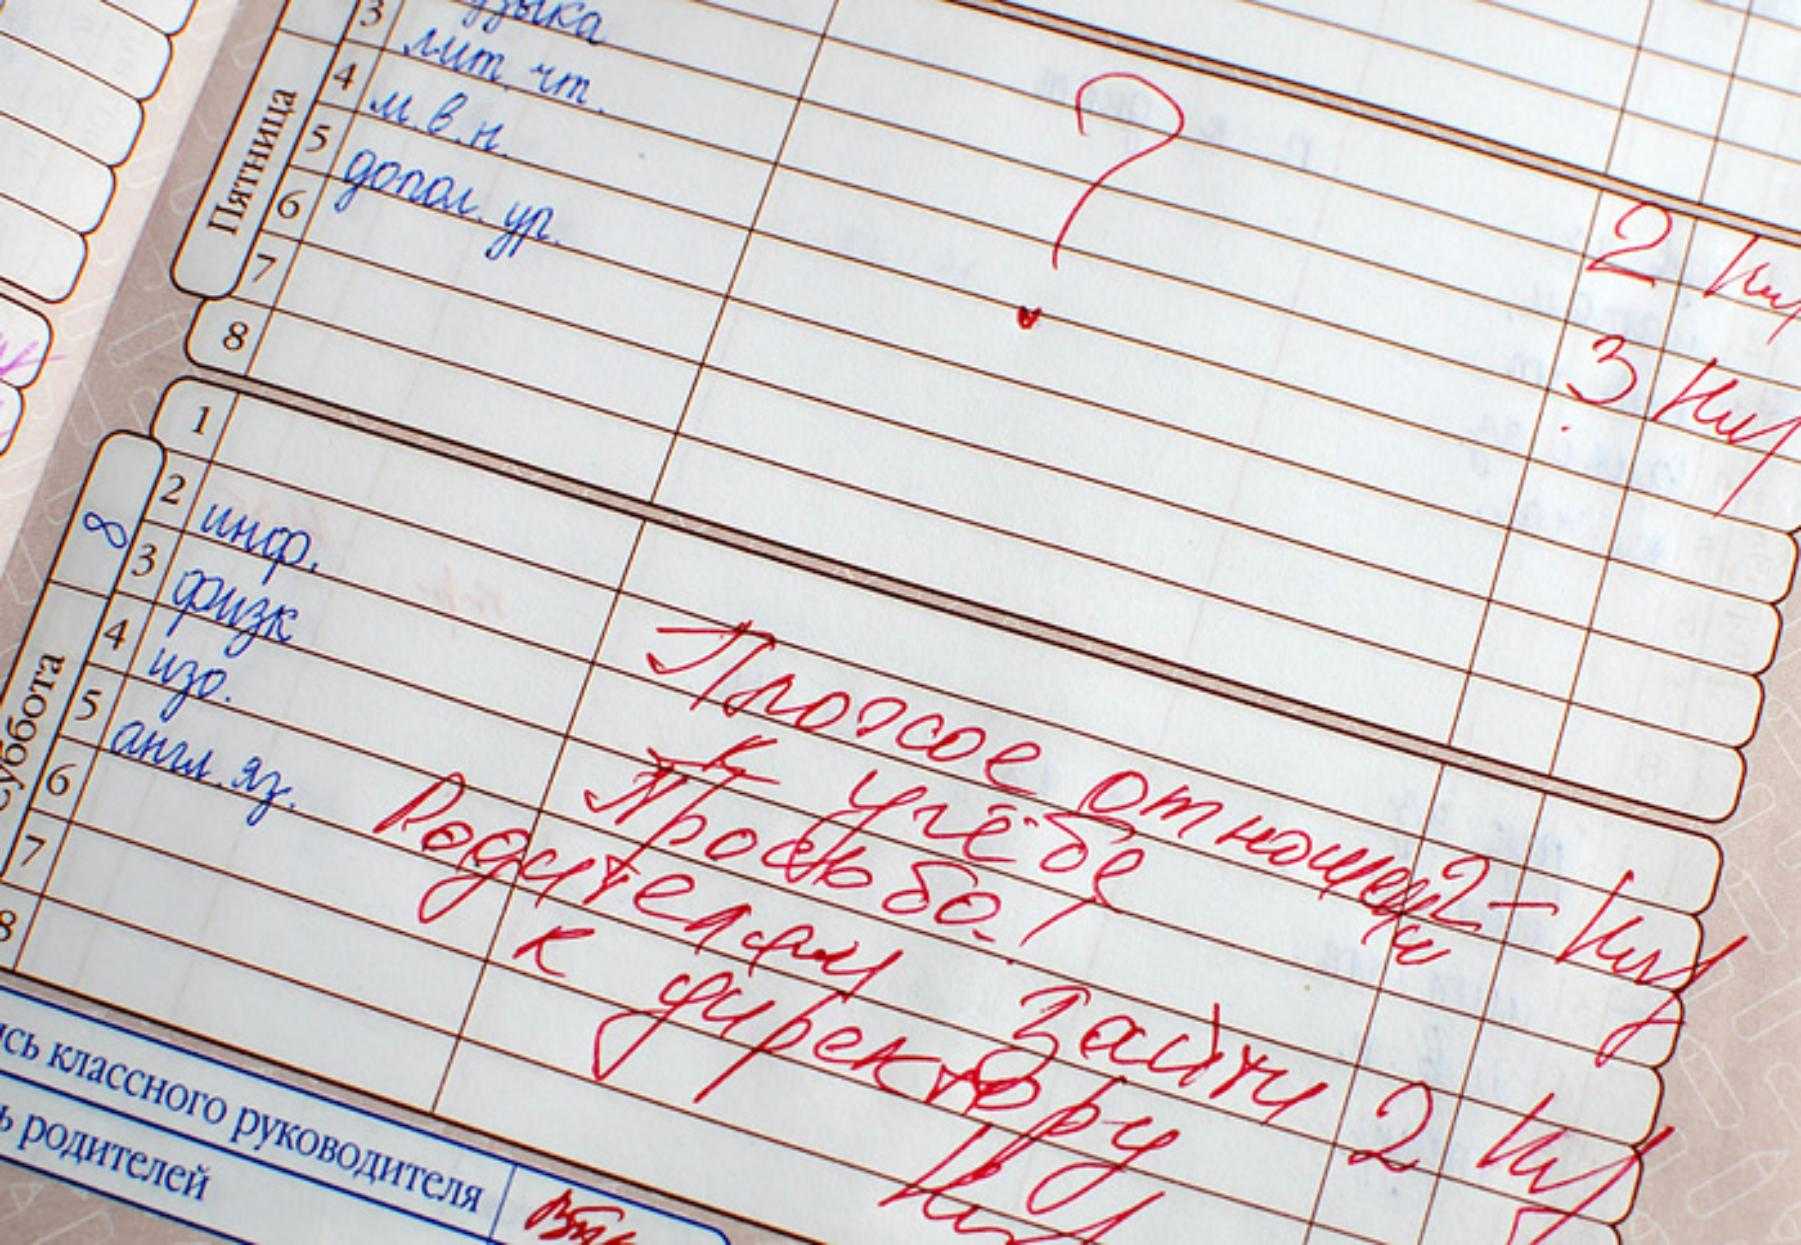 3 музыка
4 лит. чт.
5 м.в.н.
6 допол. ур.
7
8
Пятница
?
2
3
1
2 инф.
3 физк
4 изо.
5 англ. яз.
6
7
8
8
Суббота
Плохое отношений
к учёбе 2-
Просьба!
Родителям зайти
к директору 2
сь классного руководителя
ь родителей